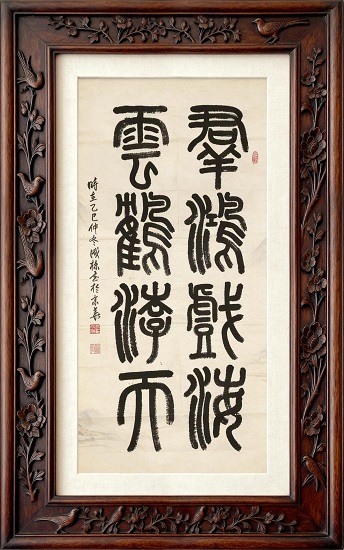 羣鴻戲海
雲鶴游天
時在乙巳仲冬書於京華